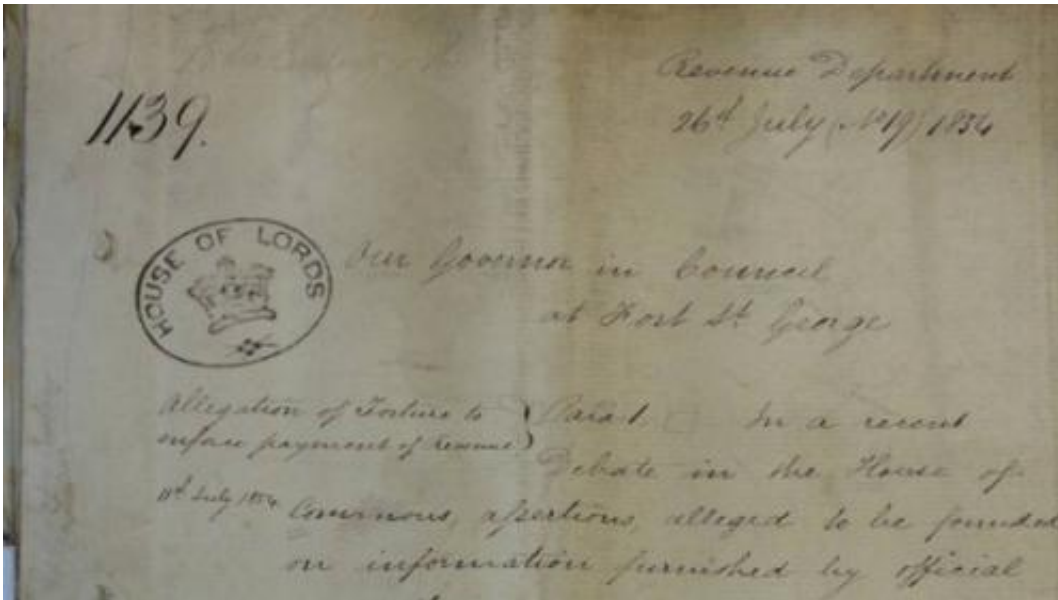 Revenue Department
1139.
26th July (No 19) 1854
HOUSE OF LORDS
Our Governor in Council
at Fort St George
Allegation of Torture to
enforce payment of revenue
11th July 1854
Para 1. In a recent
Debate in the House of
Commons, assertions, alleged to be founded
on information furnished by official